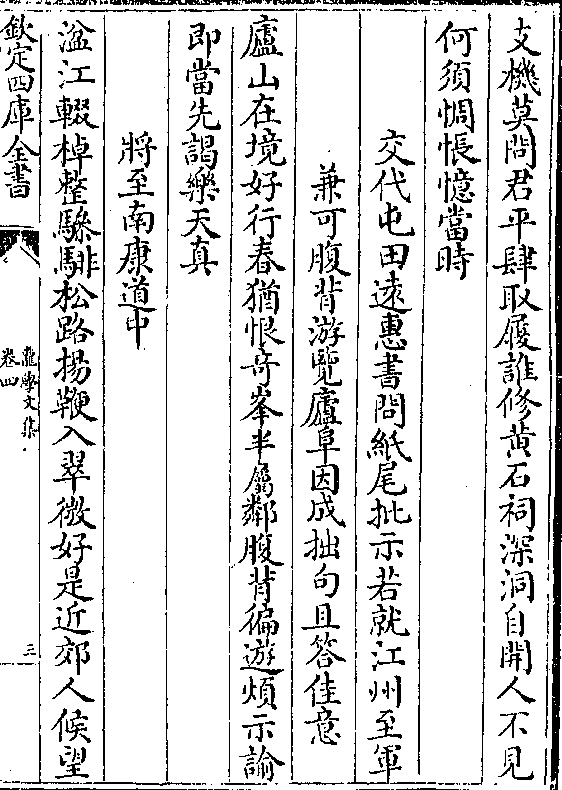 支機莫問君平肆取履誰修黄石祠深洞自開人不見
何須惆悵憶當時
交代屯田遠惠書問紙尾批示若就江州至軍
兼可腹背游覽廬阜因成拙句且答佳意
廬山在境好行春猶恨奇峯半屬鄰腹背徧遊煩示諭
即當先謁樂天真
將至南康道中
湓江輟棹整驂騑松路揚鞭入翠微好是近郊人候望
欽定四庫全書
龍學文集
卷四
三